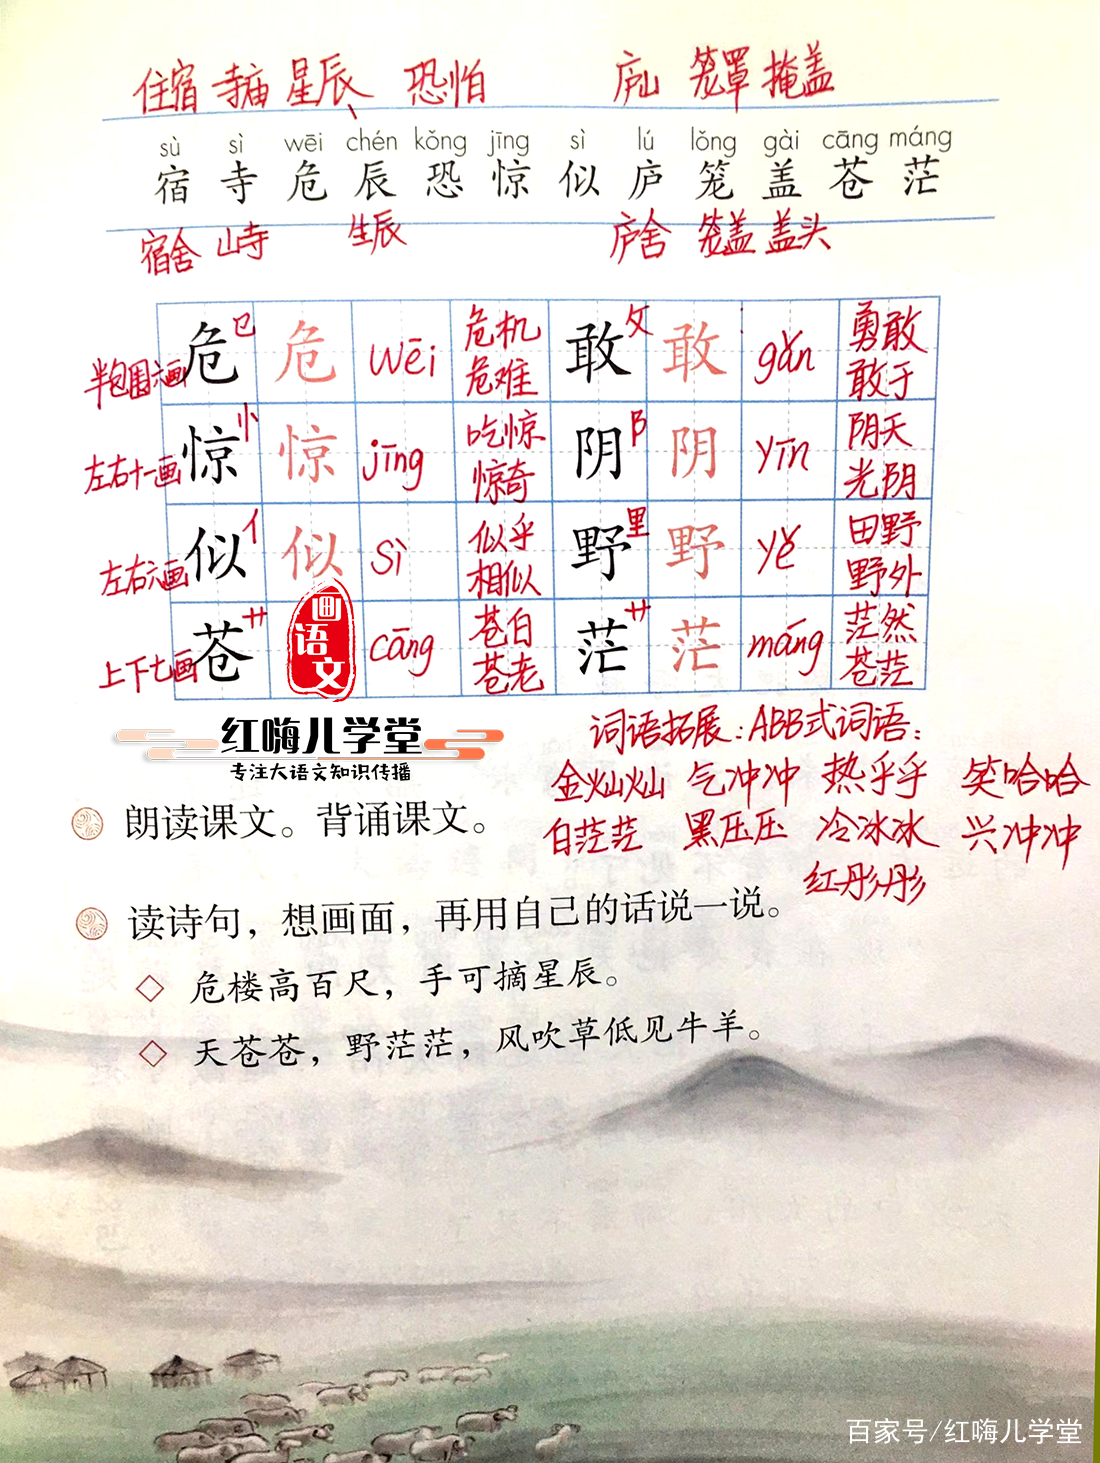 住宿 寺庙 星辰 恐怕 庐山 笼罩 掩盖
sù sì wēi chén kǒng jīng sì lú lǒng gài cāng máng
宿 寺 危 辰 恐 惊 似 庐 笼 盖 苍 茫
宿舍 山寺 生辰 庐舍 笼盖 盖头
半包围六画 危 㔾 危 wēi 危机 危难 敢 攵 敢 gǎn 勇敢 敢于
左右十一画 惊 忄 惊 jīng 吃惊 惊奇 阴 阝 阴 yīn 阴天 光阴
左右六画 似 亻 似 sì 似乎 相似 野 里 野 yě 田野 野外
上下七画 苍 艹 画语文 cāng 苍白 苍老 茫 艹 茫 máng 茫然 苍茫
红嗨儿学堂
专注大语文知识传播
词语拓展:ABB式词语:
金灿灿 气冲冲 热乎乎 笑哈哈
白茫茫 黑压压 冷冰冰 兴冲冲
红彤彤
朗读课文。背诵课文。
读诗句，想画面，再用自己的话说一说。
◇ 危楼高百尺，手可摘星辰。
◇ 天苍苍，野茫茫，风吹草低见牛羊。
百家号/红嗨儿学堂